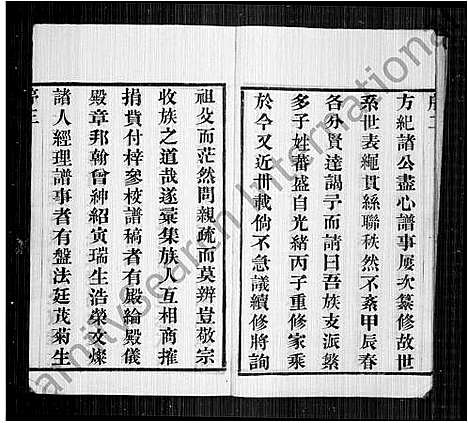 序二
方紀諸公盡心譜事屢次纂修故世
系世表繩貫絲聯秩然不紊甲辰春
各外賢達謁予而請曰吾族支派繁
多子姓蕃盛自光緒丙子重修家乘
於今又近世載倘不急議續修將詢
祖攵而茫然問親疏而莫辨豈敬宗
收族之道哉遂彙集族人互相商搉
捐貲付梓參校譜稿者有殿綸殿儀
殿章邦翰曾紳紹寅瑞生浩榮文燦
諸人經理譜事者有盤法廷茂菊生
序三
FamilySearch International